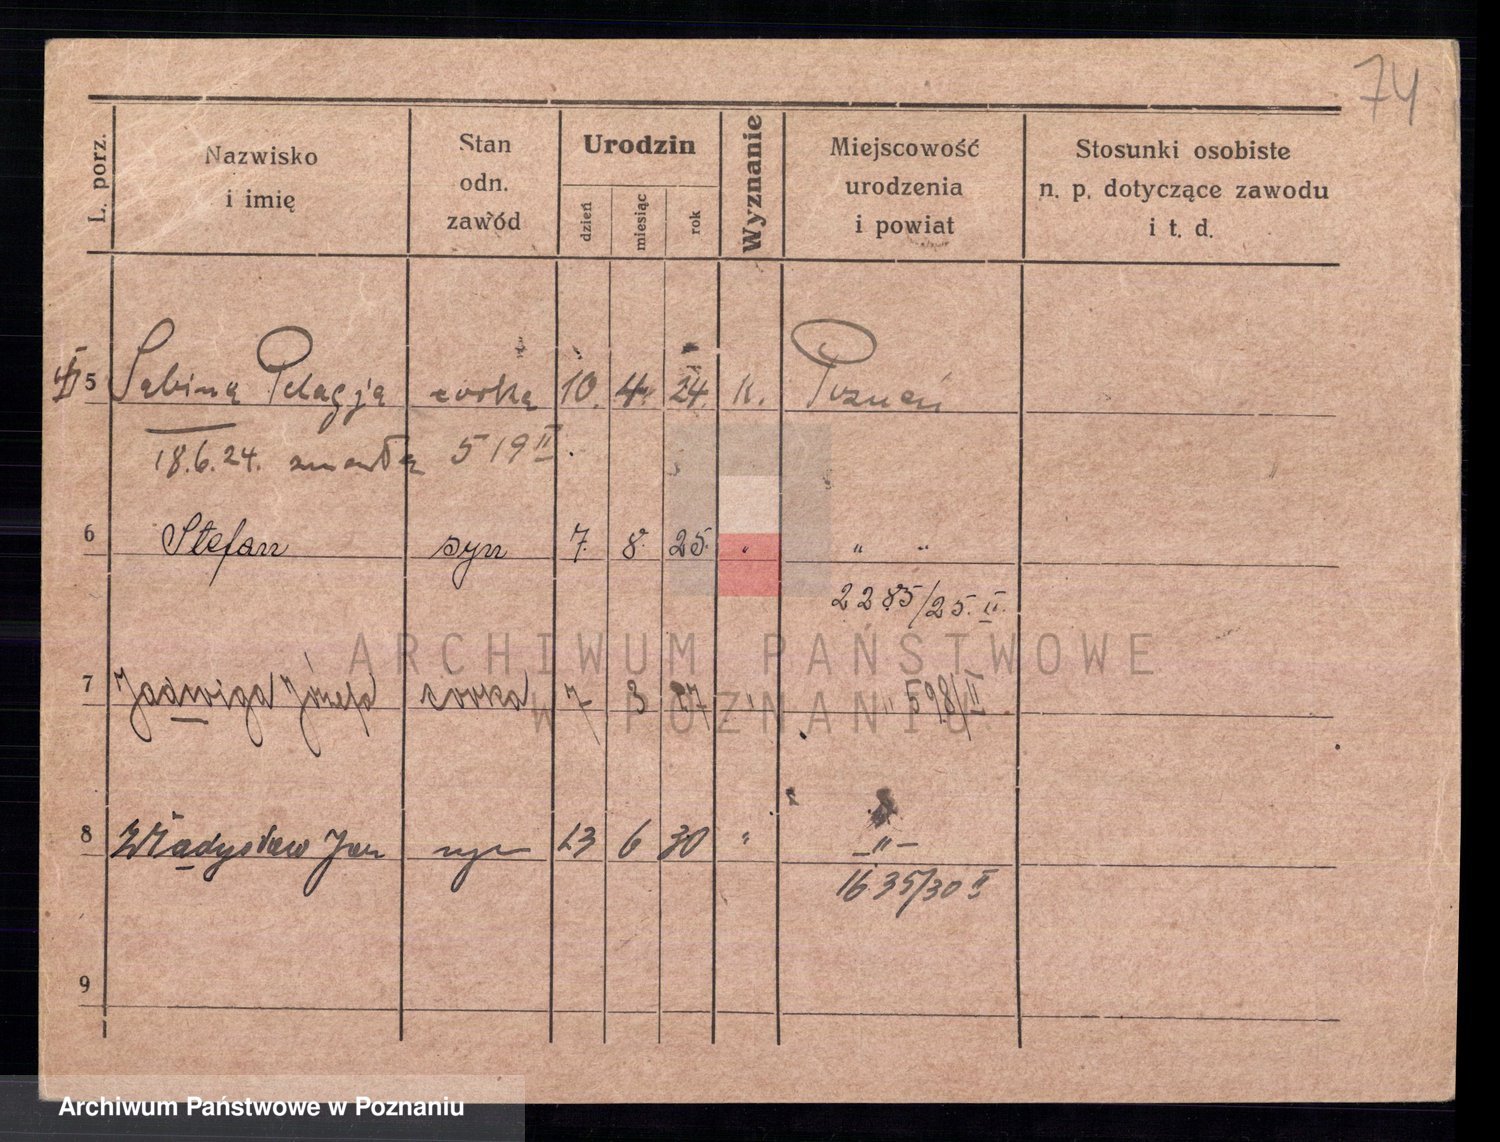 74
L. porz. Nazwisko i imię Stan odn. zawód Urodzin dzień miesiąc rok Wyznanie Miejscowość urodzenia i powiat Stosunki osobiste n. p. dotyczące zawodu i t. d.
5 Sabina Pelagja córka 10. 4. 24. K. Poznań
18.6.24. zmarła 519 II
6 Stefan syn 7. 8. 25. " " "
2285/25. II.
ARCHIWUM PAŃSTWOWE
7 Jadwiga Józefa córka 7 3 27 " " 598/II
W POZNANIU
8 Władysław Jan syn 13 6 30 " -"-
1635/30 II
9
Archiwum Państwowe w Poznaniu